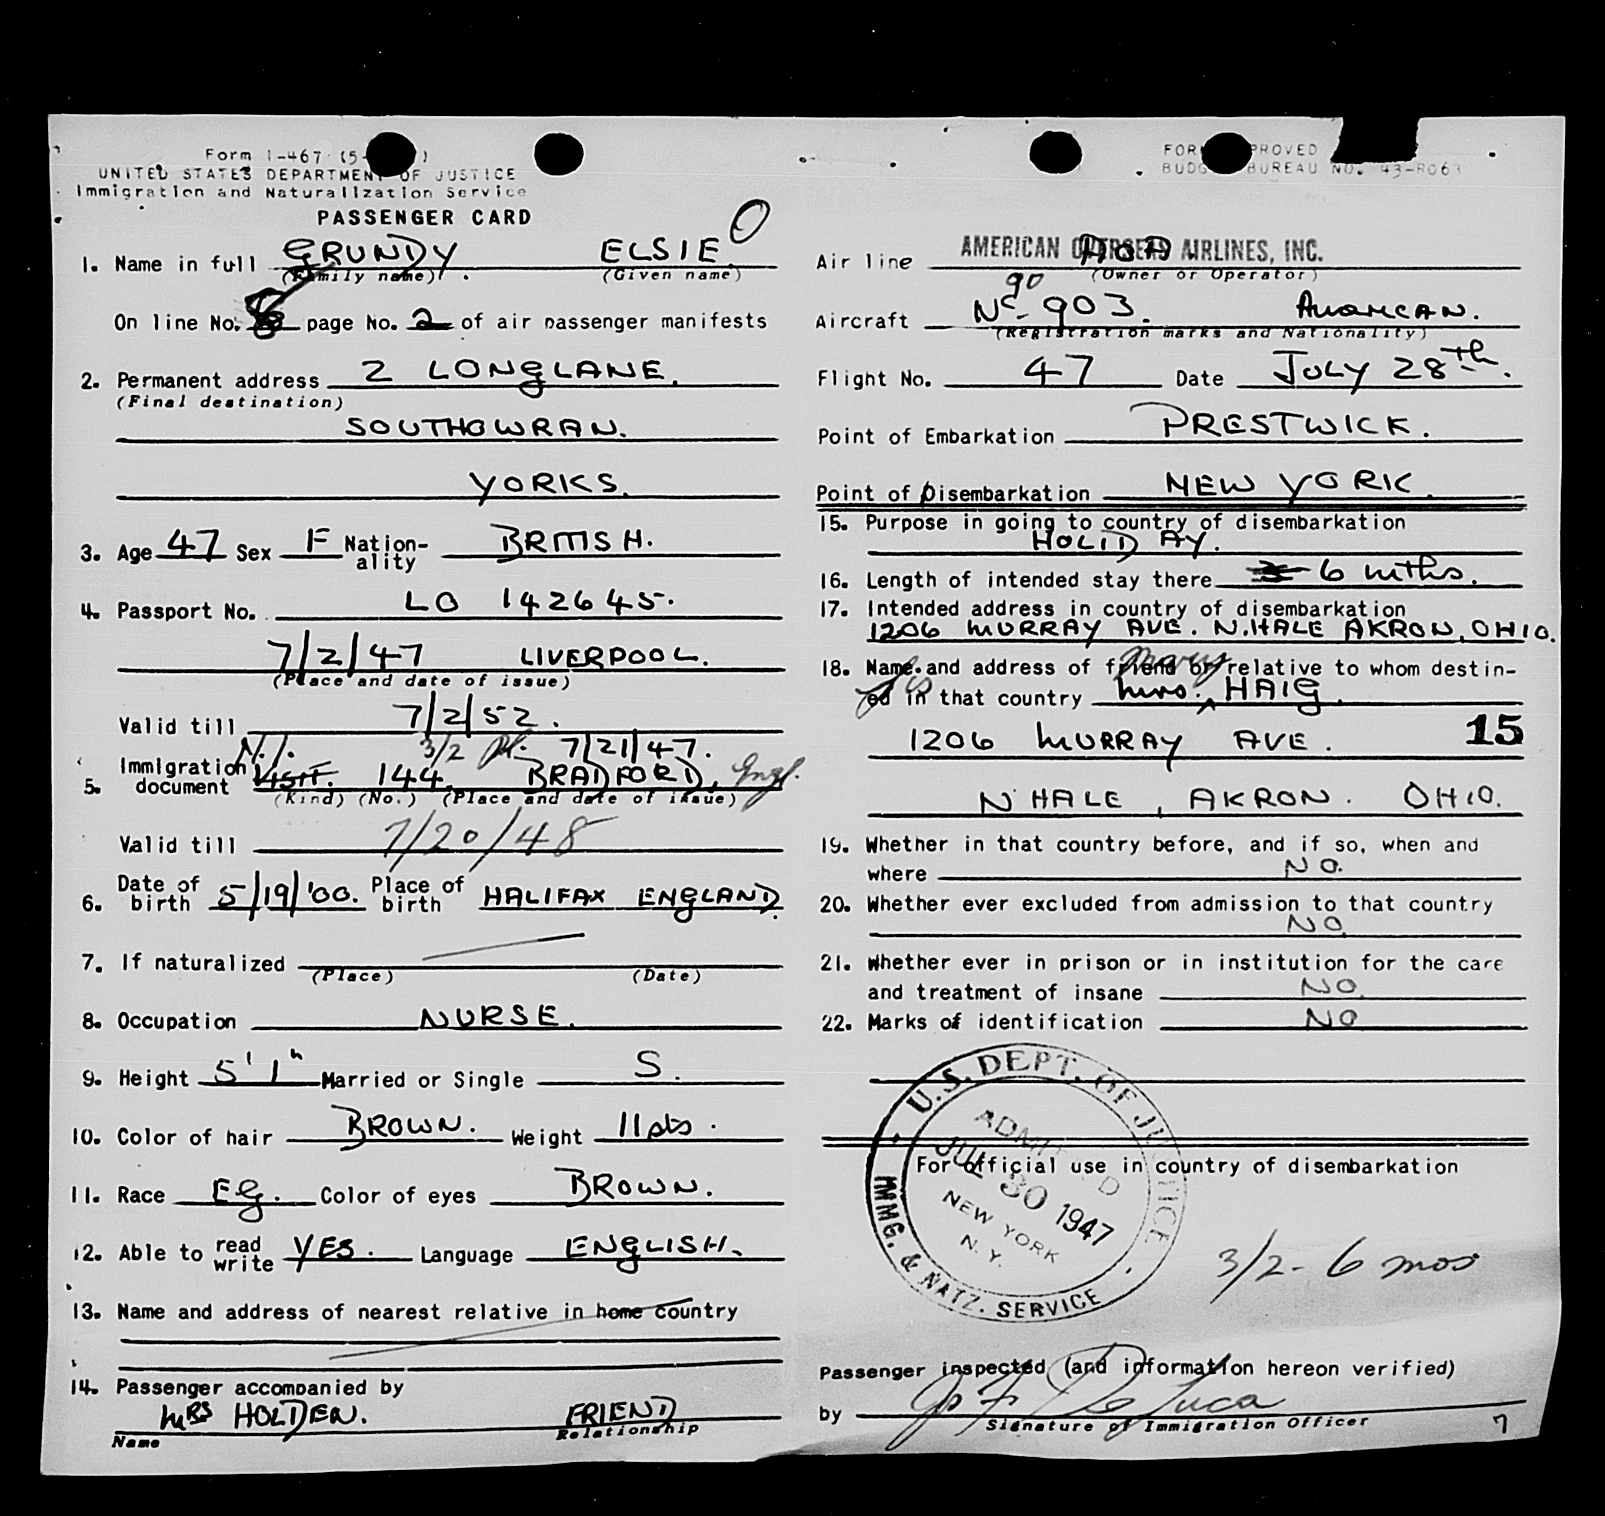 Form I-467 (5-
UNITED STATES DEPARTMENT OF JUSTICE
Immigration and Naturalization Service
PASSENGER CARD
1. Name in full GRUNDY ELSIE
(Family name) (Given name)
On line No. 8 page No. 2 of air passenger manifests
2. Permanent address 2 LONGLANE.
(Final destination)
SOUTHOWRAN.
YORKS.
3. Age 47 Sex F Nation-ality BRITISH.
4. Passport No. LO 142645.
7/2/47 LIVERPOOL.
(Place and date of issue)
Valid till 7/2/52.
N.I. 3/2 7/21/47.
5. Immigration document VISIT. 144. BRADFORD, Engl.
(Kind) (No.) (Place and date of issue)
Valid till 7/20/48
6. Date of birth 5/19/'00. Place of birth HALIFAX ENGLAND.
7. If naturalized
(Place) (Date)
8. Occupation NURSE.
9. Height 5' 1" Married or Single S.
10. Color of hair BROWN. Weight 11 sts.
11. Race Eg. Color of eyes BROWN.
12. Able to read write YES. Language ENGLISH.
13. Name and address of nearest relative in home country
14. Passenger accompanied by
MRS HOLDEN. FRIEND
Name Relationship
FORM APPROVED
BUDGET BUREAU NO. 43-R063
Air line AMERICAN OVERSEAS AIRLINES, INC. AOA
(Owner or Operator)
90
Aircraft Nc 903. AMERICAN.
(Registration marks and Nationality)
Flight No. 47 Date JULY 28th.
Point of Embarkation PRESTWICK.
Point of Disembarkation NEW YORK.
15. Purpose in going to country of disembarkation
HOLIDAY.
16. Length of intended stay there 6 mths.
17. Intended address in country of disembarkation
1206 MURRAY AVE. N.HALE AKRON, OHIO.
18. Name and address of friend or relative to whom destin-
ed in that country Mrs. Mary HAIG.
1206 MURRAY AVE. 15
N HALE, AKRON. OHIO.
19. Whether in that country before, and if so, when and
where NO.
20. Whether ever excluded from admission to that country
NO
21. Whether ever in prison or in institution for the care
and treatment of insane NO.
22. Marks of identification NO
U.S. DEPT. OF JUSTICE
ADMITTED
JUL 30 1947
NEW YORK
N. Y.
IMMG. & NATZ. SERVICE
For official use in country of disembarkation
3/2 - 6 mos
Passenger inspected (and information hereon verified)
by De Luca
Signature of Immigration Officer
7